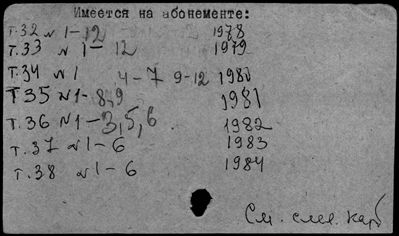 Имеется на абонементе:
Т.32 № 1-12 1978
Т.33 № 1-12 1979
Т.34 №1 4-7 9-12 1980
Т 35 №1-8,9 1981
Т.36 №1-3,5,6 1982
Т.37 №1-6 1983
Т.38 №1-6 1984
См. след. карт